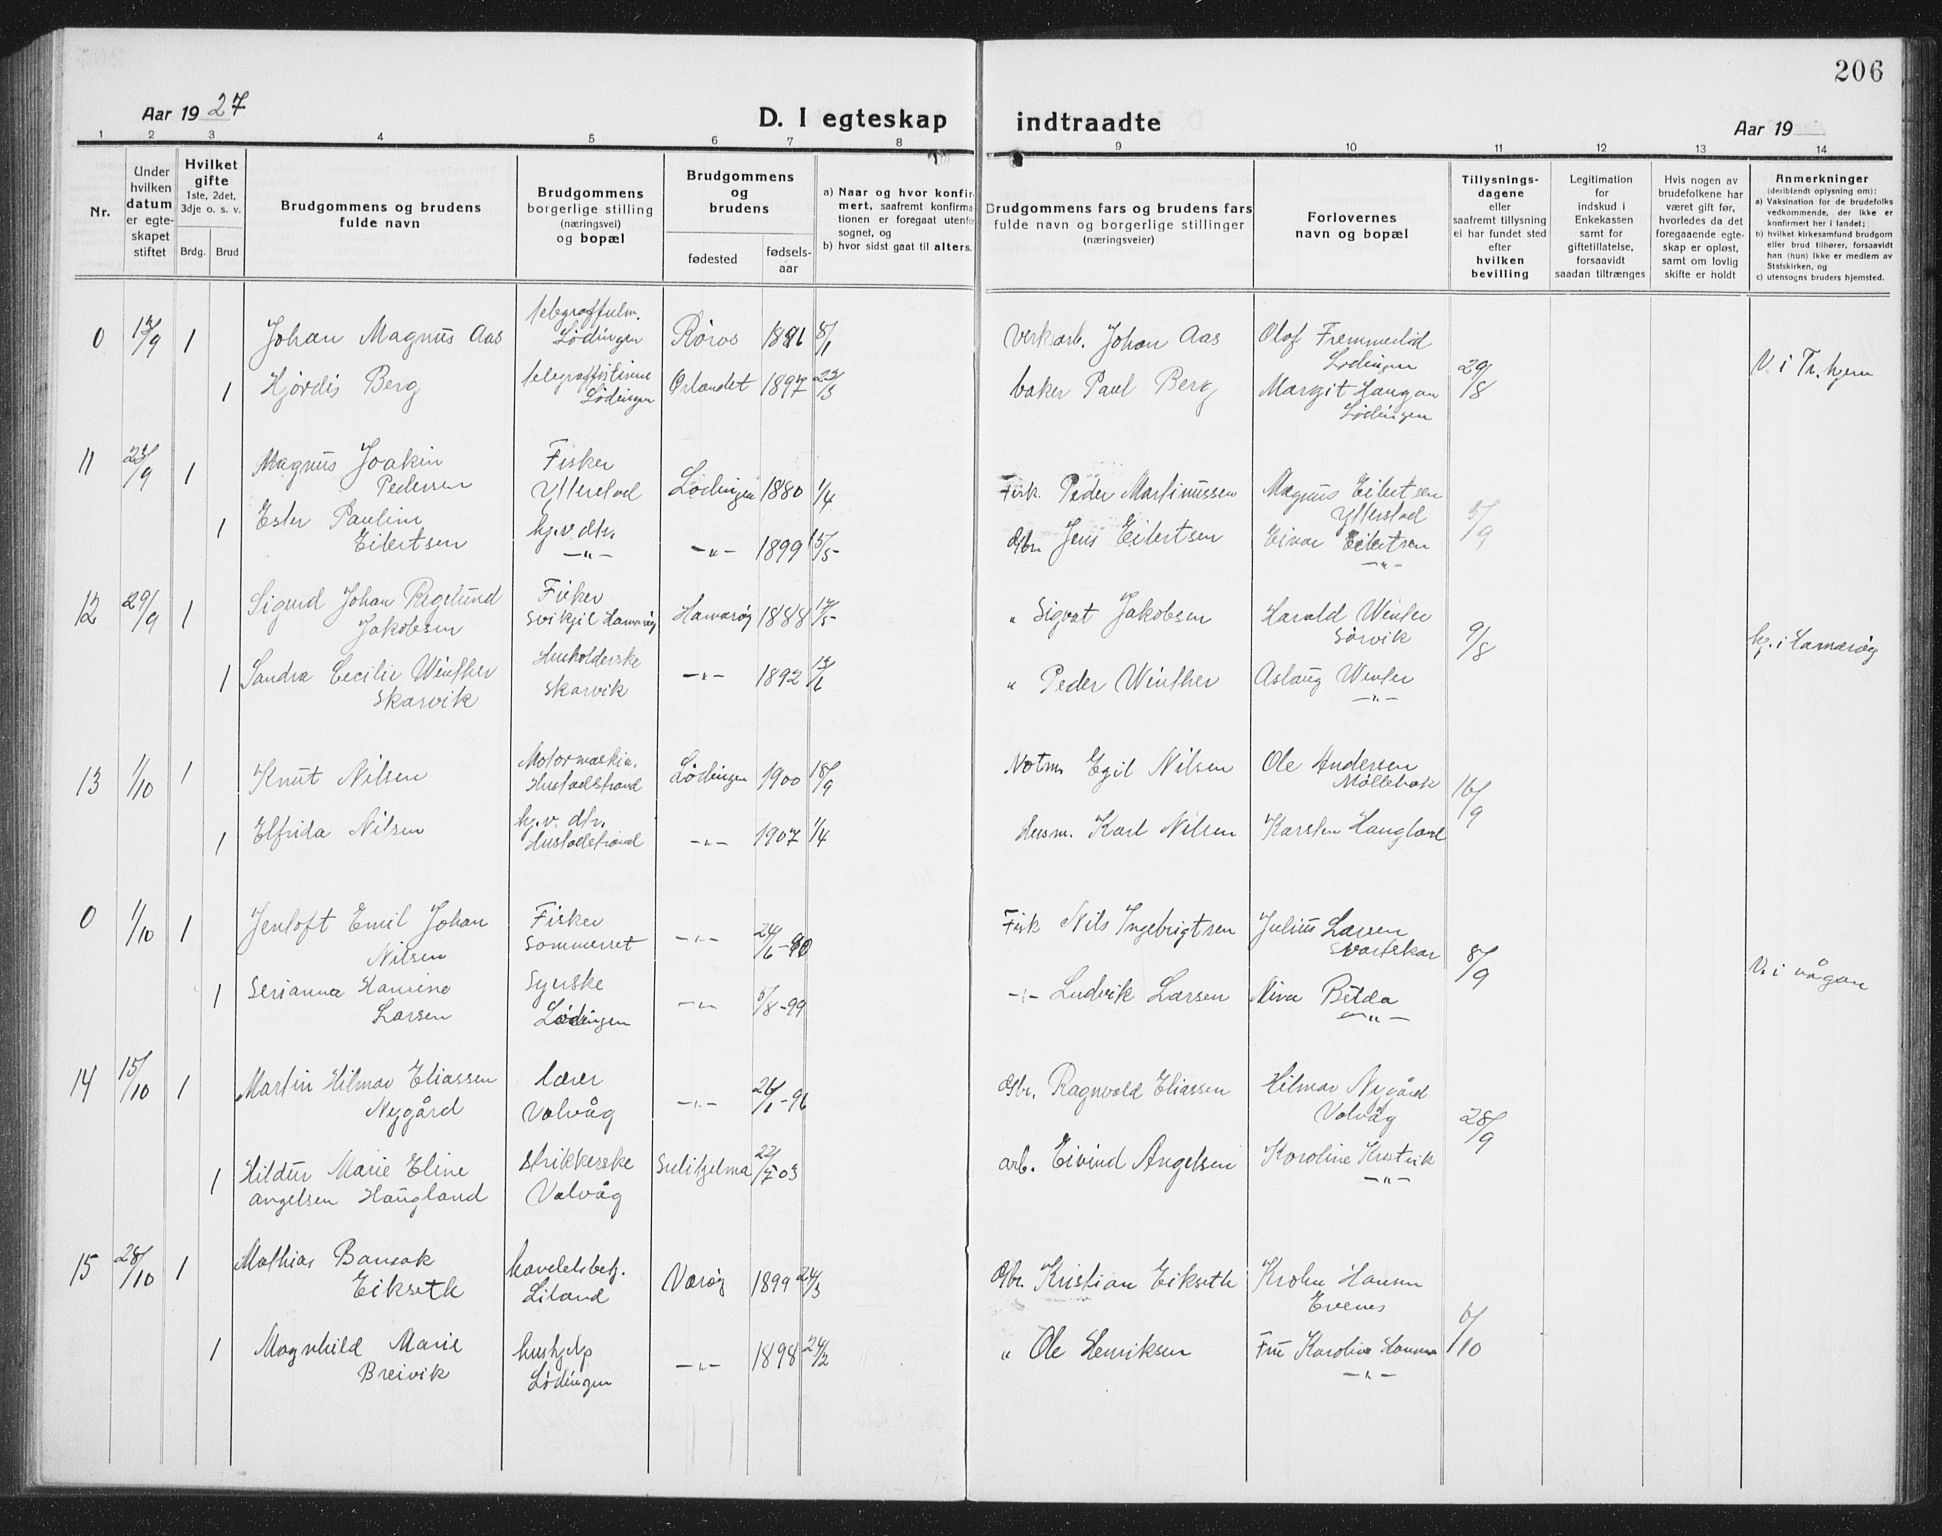 206
Aar 1927
D. I egteskap indtraadte
Aar 19
1 2 3 4 5 6 7 8 9 10 11 12 13 14
Nr.
Under hvilken datum er egteskapet stiftet
Hvilket gifte
1ste, 2det, 3dje o. s. v.
Brdg. Brud
Brudgommens og brudens fulde navn
Brudgommens borgerlige stilling (næringsvei) og bopæl
Brudgommens og brudens
fødested
fødselsaar
a) Naar og hvor konfirmert, saafremt konfirmationen er foregaat utenfor sognet, og
b) hvor sidst gaat til alters.
Brudgommens fars og brudens fars fulde navn og borgerlige stillinger (næringsveier)
Forlovernes navn og bopæl
Tillysningsdagene eller saafremt tillysning ei har fundet sted efter hvilken bevilling
Legitimation for indskud i Enkekassen samt for giftetillatelse, forsaavidt saadan tiltrænges
Hvis nogen av brudefolkene har været gift før, hvorledes da det foregaaende egteskap er opløst, samt om lovlig skifte er holdt
Anmerkninger
(deriblandt oplysning om):
a) Vaksination for de brudefolks vedkommende, der ikke er konfirmert her i landet;
b) hvilket kirkesamfund brudgom eller brud tilhører, forsaavidt han (hun) ikke er medlem av Statskirken, og
c) utensogns bruders hjemsted.
0 1 Johan Magnus Aas Lødingen Røros 8/1 Johan Aas Olof Fremmerlid Lødingen
1 Hjørdis Berg Lødingen Ørlandet 1897 baker Paul Berg Margit Haugan Lødingen 29/8 V. i Tr.hjem
11 23/9 1 Magnus Joakin Pedersen Fisker Ytterstad Lødingen 1880 1/4 Fisk. Peder Martinussen Magnus Eilertsen Ytterstad 5/9
1 Ester Pauline Eilertsen hj.v. dtr. -"- -"- 1899 15/5 Gbr. Jens Eilertsen Einar Eilertsen -"-
12 29/9 1 Sigurd Johan Regelund Jakobsen Fisker Hamarøy Hamarøy 1888 17/5 " Sigvat Jakobsen Harald Winter Sørvik 9/8
1 Sandra Cecilie Winther Skarvik Husholderske Skarvik -"- 1892 " Peder Winther Aslaug Winter -"- hj. i Hamarøy
13 1/10 1 Knut Nilsen Motormaskin. Hustadstrand Lødingen 1900 18/9 Notm. Egil Nilsen Ole Andersen 16/9
1 Elfrida Nilsen hj.v. dtr. Hustadstrand -"- 1907 1/4 Husm. Karl Nilsen Karsten Haugland
0 1/10 1 Jentoft Emil Johan Nilsen Fisker Sommerset -"- Fisk Nils Ingebrigtsen Julius Larsen Svartskar 8/9
1 Serianna Hansine Larsen Syerske Lødingen -"- 5/8-99 -"- Ludvik Larsen -"- V. i Vågan
14 15/10 1 Martin Hilmar Eliassen Nygård lærer Valvåg -"- 26/1-96 Gbr. Ragnvald Eliassen Hilmar Nygård Valvåg 28/9
1 Hildur Marie Eline Angelsen Haugland Strikkerske Valvåg Sulitjelma arb. Eivind Angelsen -"-
15 28/10 1 Mathias Eikseth handelsbetj. Liland Værøy 1899 24/3 Gbr. Kristian Eikseth Krohn Hansen Evenes 6/10
1 Magnhild Marie Breivik hushjelp Lødingen -"- 1898 24/2 " Ole Henriksen Fru Karoline Hansen -"-